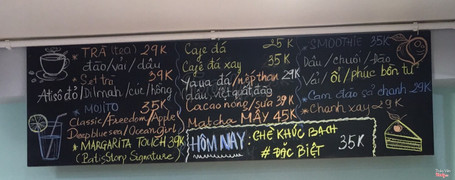 TRÀ (tea) 29K
đào/vải/dâu
* Set trà 39K
Atisô đỏ/Dilmah/cúc/hồng
* MOJITO 35K
Classic/Freedom/Apple
Deep blue sea/Ocean Girl
* MARGARITA TOUCH 39K
(Pati's Story Signature)
Cafe đá 25K
Cafe đá xay 35K
Yaua đá/nếp than 29K
dâu, việt quất
Cacao nóng/sữa 39K
Matcha MÂY 45K
HÔM NAY: CHÈ KHÚC BẠCH
# ĐẶC BIỆT 35K
* SMOOTHIE 35K
Dâu/Chuối/Đào
Vải/ổi/phúc bồn tử
* Cam đào sả chanh 29K
* Chanh xay 29K